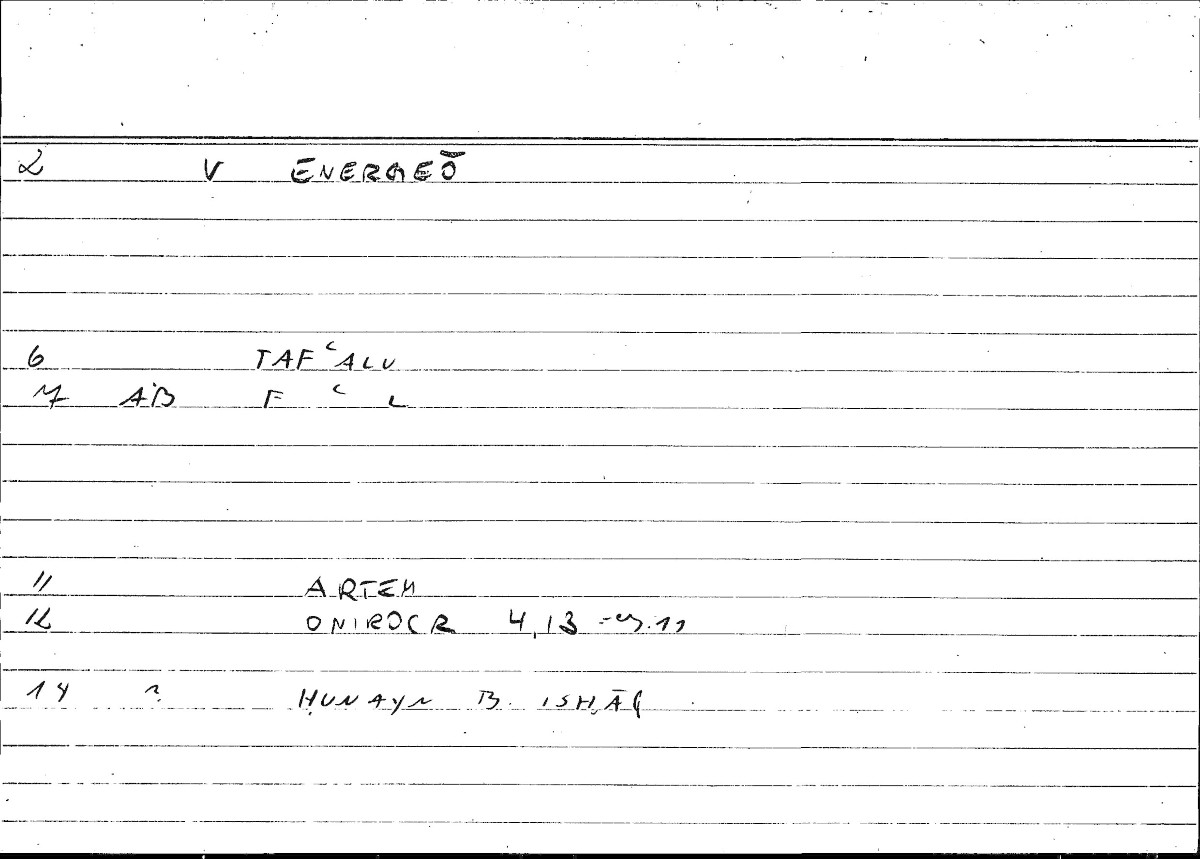 2 V ENERGEŌ
6 TAFʿALU
7 AB F ʿ L
11 ARTEM
12 ONIROCR 4,13
14 ḤUNAYN B. ISḤĀQ